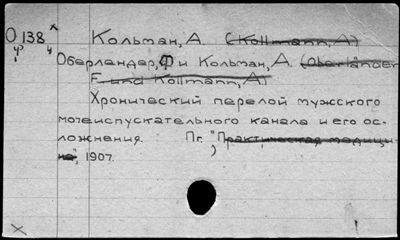 О 138 Кольман, А. (Kollmann, A)
ч³/4
Оберлендер, Ф и Кольман, А. (Oberländer
F und Kollmann, A.)
Хронический перелой мужского
мочеиспускательного канала и его ос-
ложнения. Пг. "Практическая медици-
на", 1907.